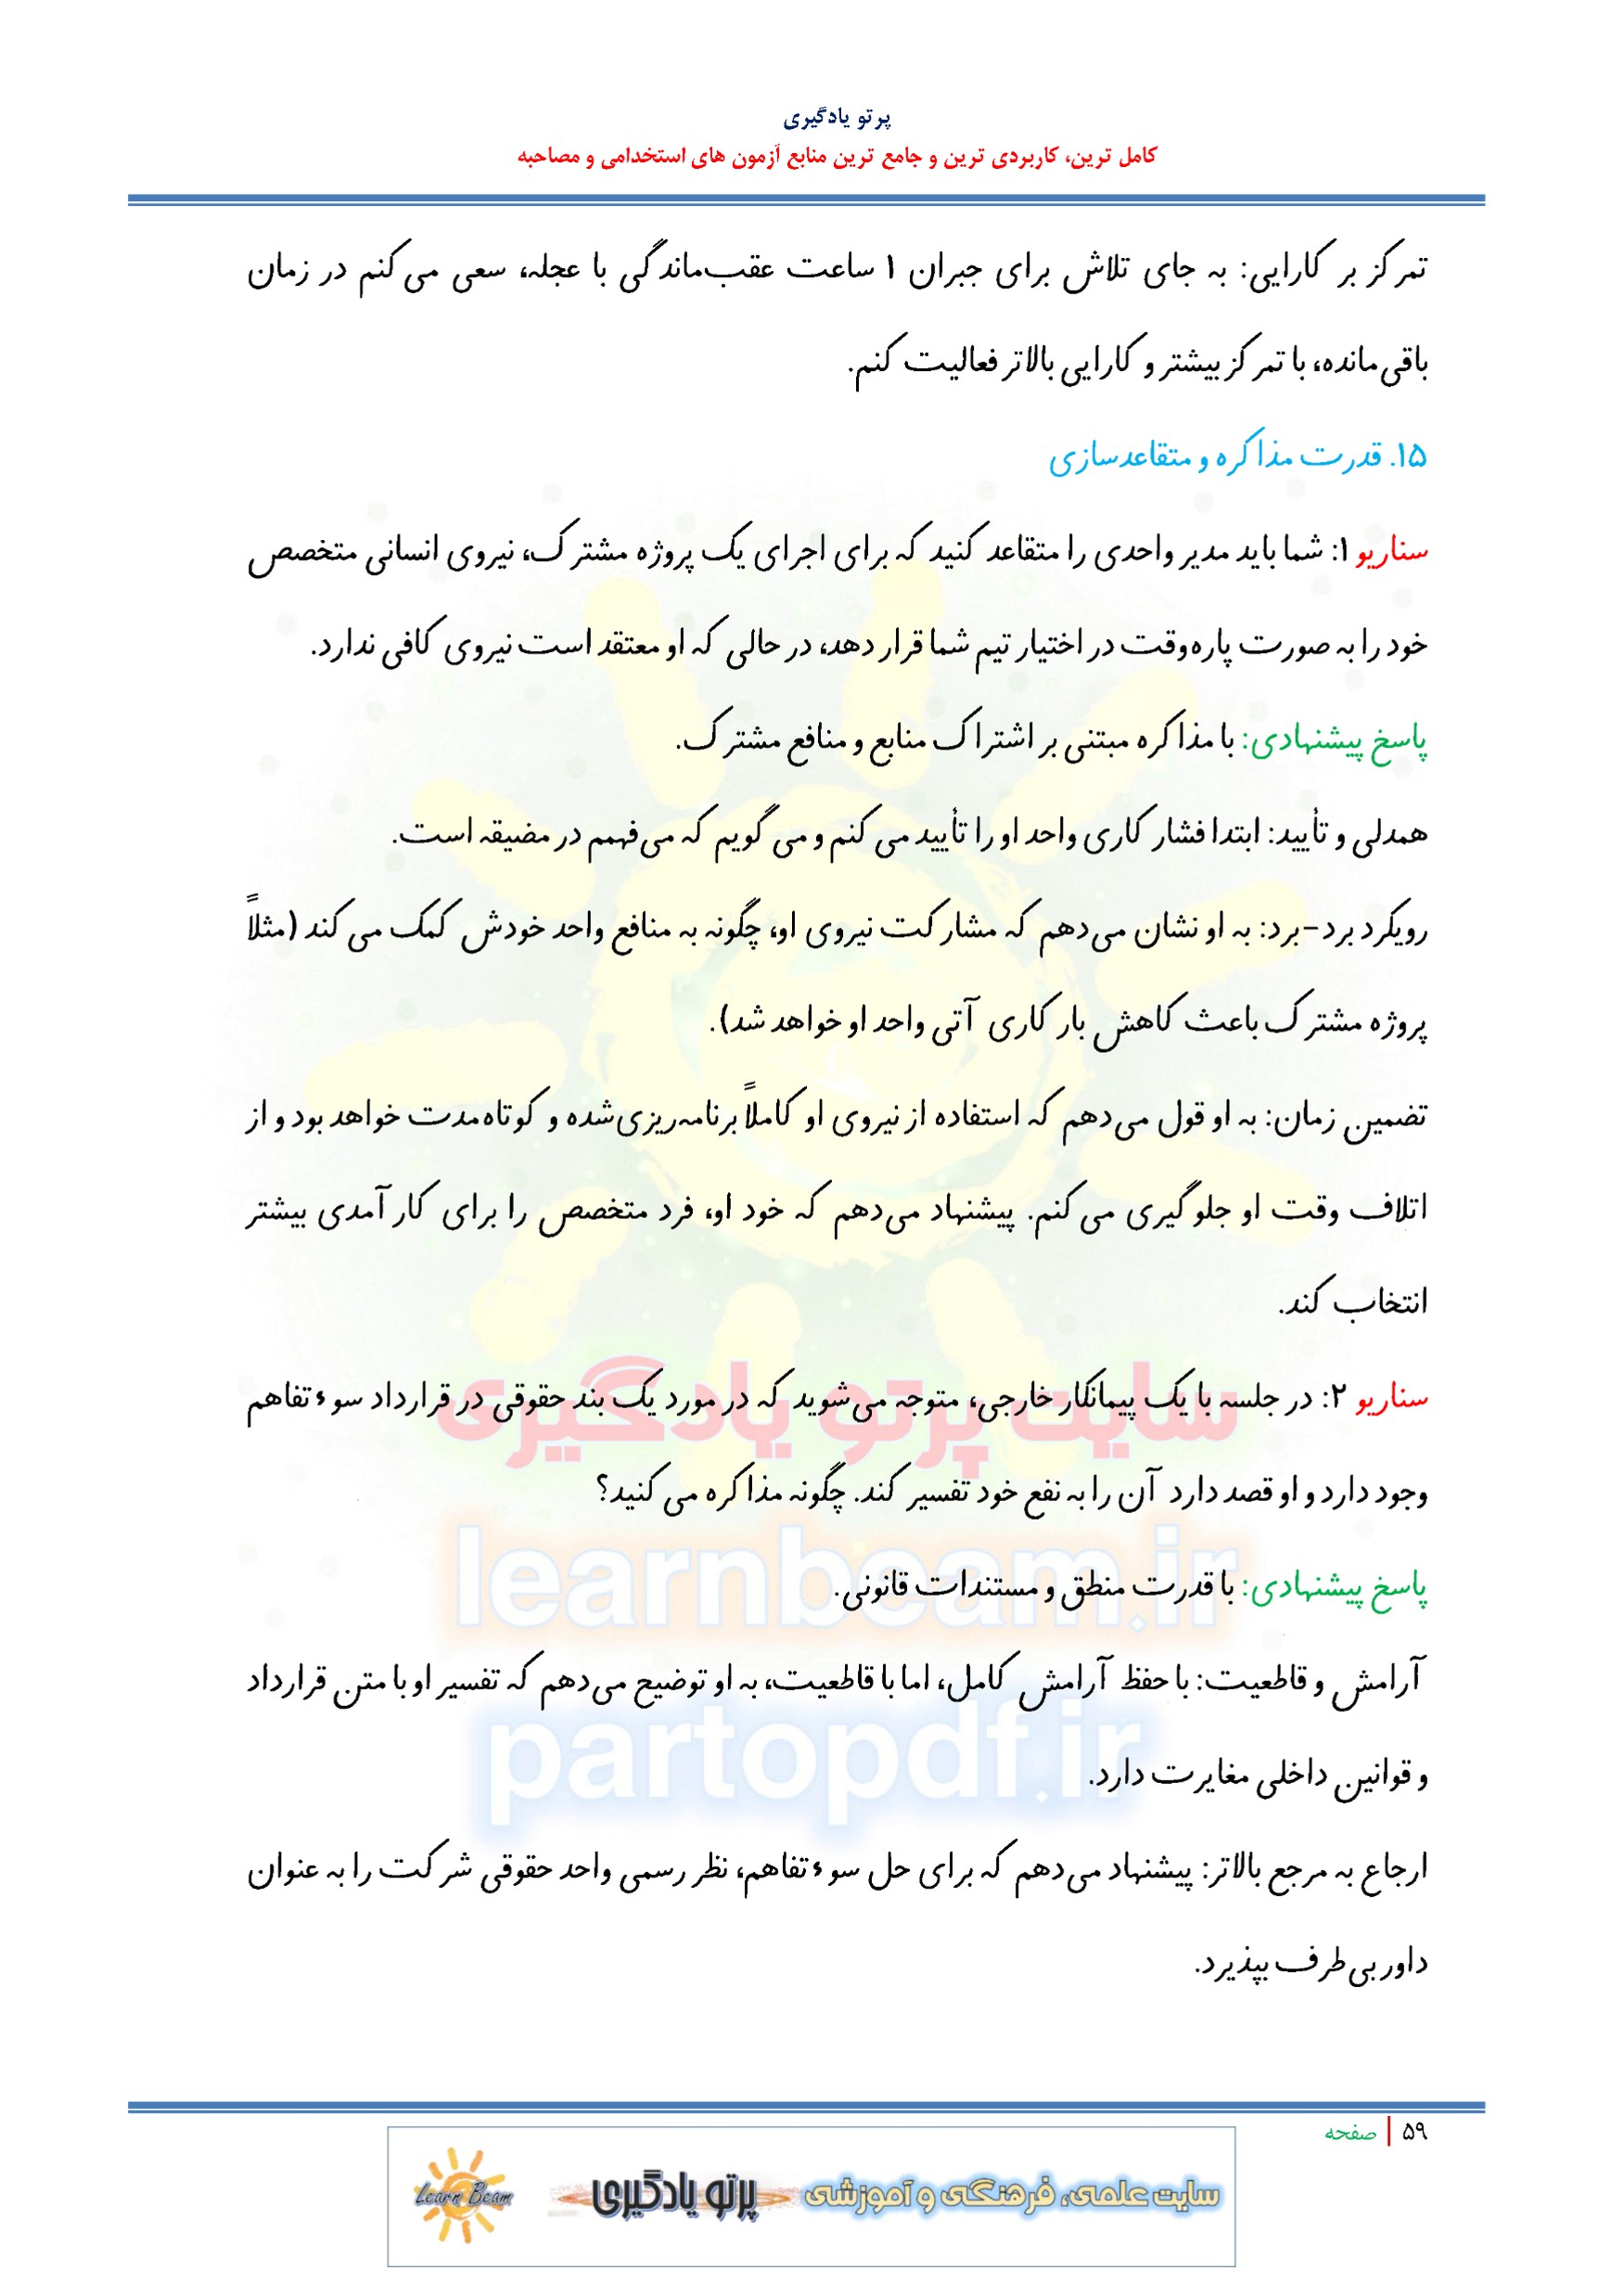 پرتو یادگیری
کامل ترین، کاربردی ترین و جامع ترین منابع آزمون های استخدامی و مصاحبه
تمرکز بر کارایی: به جای تلاش برای جبران ۱ ساعت عقب‌ماندگی با عجله، سعی می کنم در زمان
باقی‌مانده، با تمرکز بیشتر و کارایی بالاتر فعالیت کنم.
۱۵. قدرت مذاکره و متقاعدسازی
سناریو ۱: شما باید مدیر واحدی را متقاعد کنید که برای اجرای یک پروژه مشترک، نیروی انسانی متخصص
خود را به صورت پاره‌وقت در اختیار تیم شما قرار دهد، در حالی که او معتقد است نیروی کافی ندارد.
پاسخ پیشنهادی: با مذاکره مبتنی بر اشتراک منابع و منافع مشترک.
همدلی و تأیید: ابتدا فشار کاری واحد او را تأیید می کنم و می گویم که می‌فهمم در مضیقه است.
رویکرد برد-برد: به او نشان می‌دهم که مشارکت نیروی او، چگونه به منافع واحد خودش کمک می کند (مثلاً
پروژه مشترک باعث کاهش بار کاری آتی واحد او خواهد شد).
تضمین زمان: به او قول می‌دهم که استفاده از نیروی او کاملاً برنامه‌ریزی‌شده و کوتاه‌مدت خواهد بود و از
اتلاف وقت او جلوگیری می کنم. پیشنهاد می‌دهم که خود او، فرد متخصص را برای کارآمدی بیشتر
انتخاب کند.
سناریو ۲: در جلسه با یک پیمانکار خارجی، متوجه می‌شوید که در مورد یک بند حقوقی در قرارداد سوءتفاهم
وجود دارد و او قصد دارد آن را به نفع خود تفسیر کند. چگونه مذاکره می کنید؟
پاسخ پیشنهادی: با قدرت منطق و مستندات قانونی.
آرامش و قاطعیت: با حفظ آرامش کامل، اما با قاطعیت، به او توضیح می‌دهم که تفسیر او با متن قرارداد
و قوانین داخلی مغایرت دارد.
ارجاع به مرجع بالاتر: پیشنهاد می‌دهم که برای حل سوءتفاهم، نظر رسمی واحد حقوقی شرکت را به عنوان
داور بی‌طرف بپذیرد.
سایت پرتو یادگیری
learnbeam.ir
partopdf.ir
۵۹ | صفحه
سایت علمی، فرهنگی و آموزشی پرتو یادگیری Learn Beam